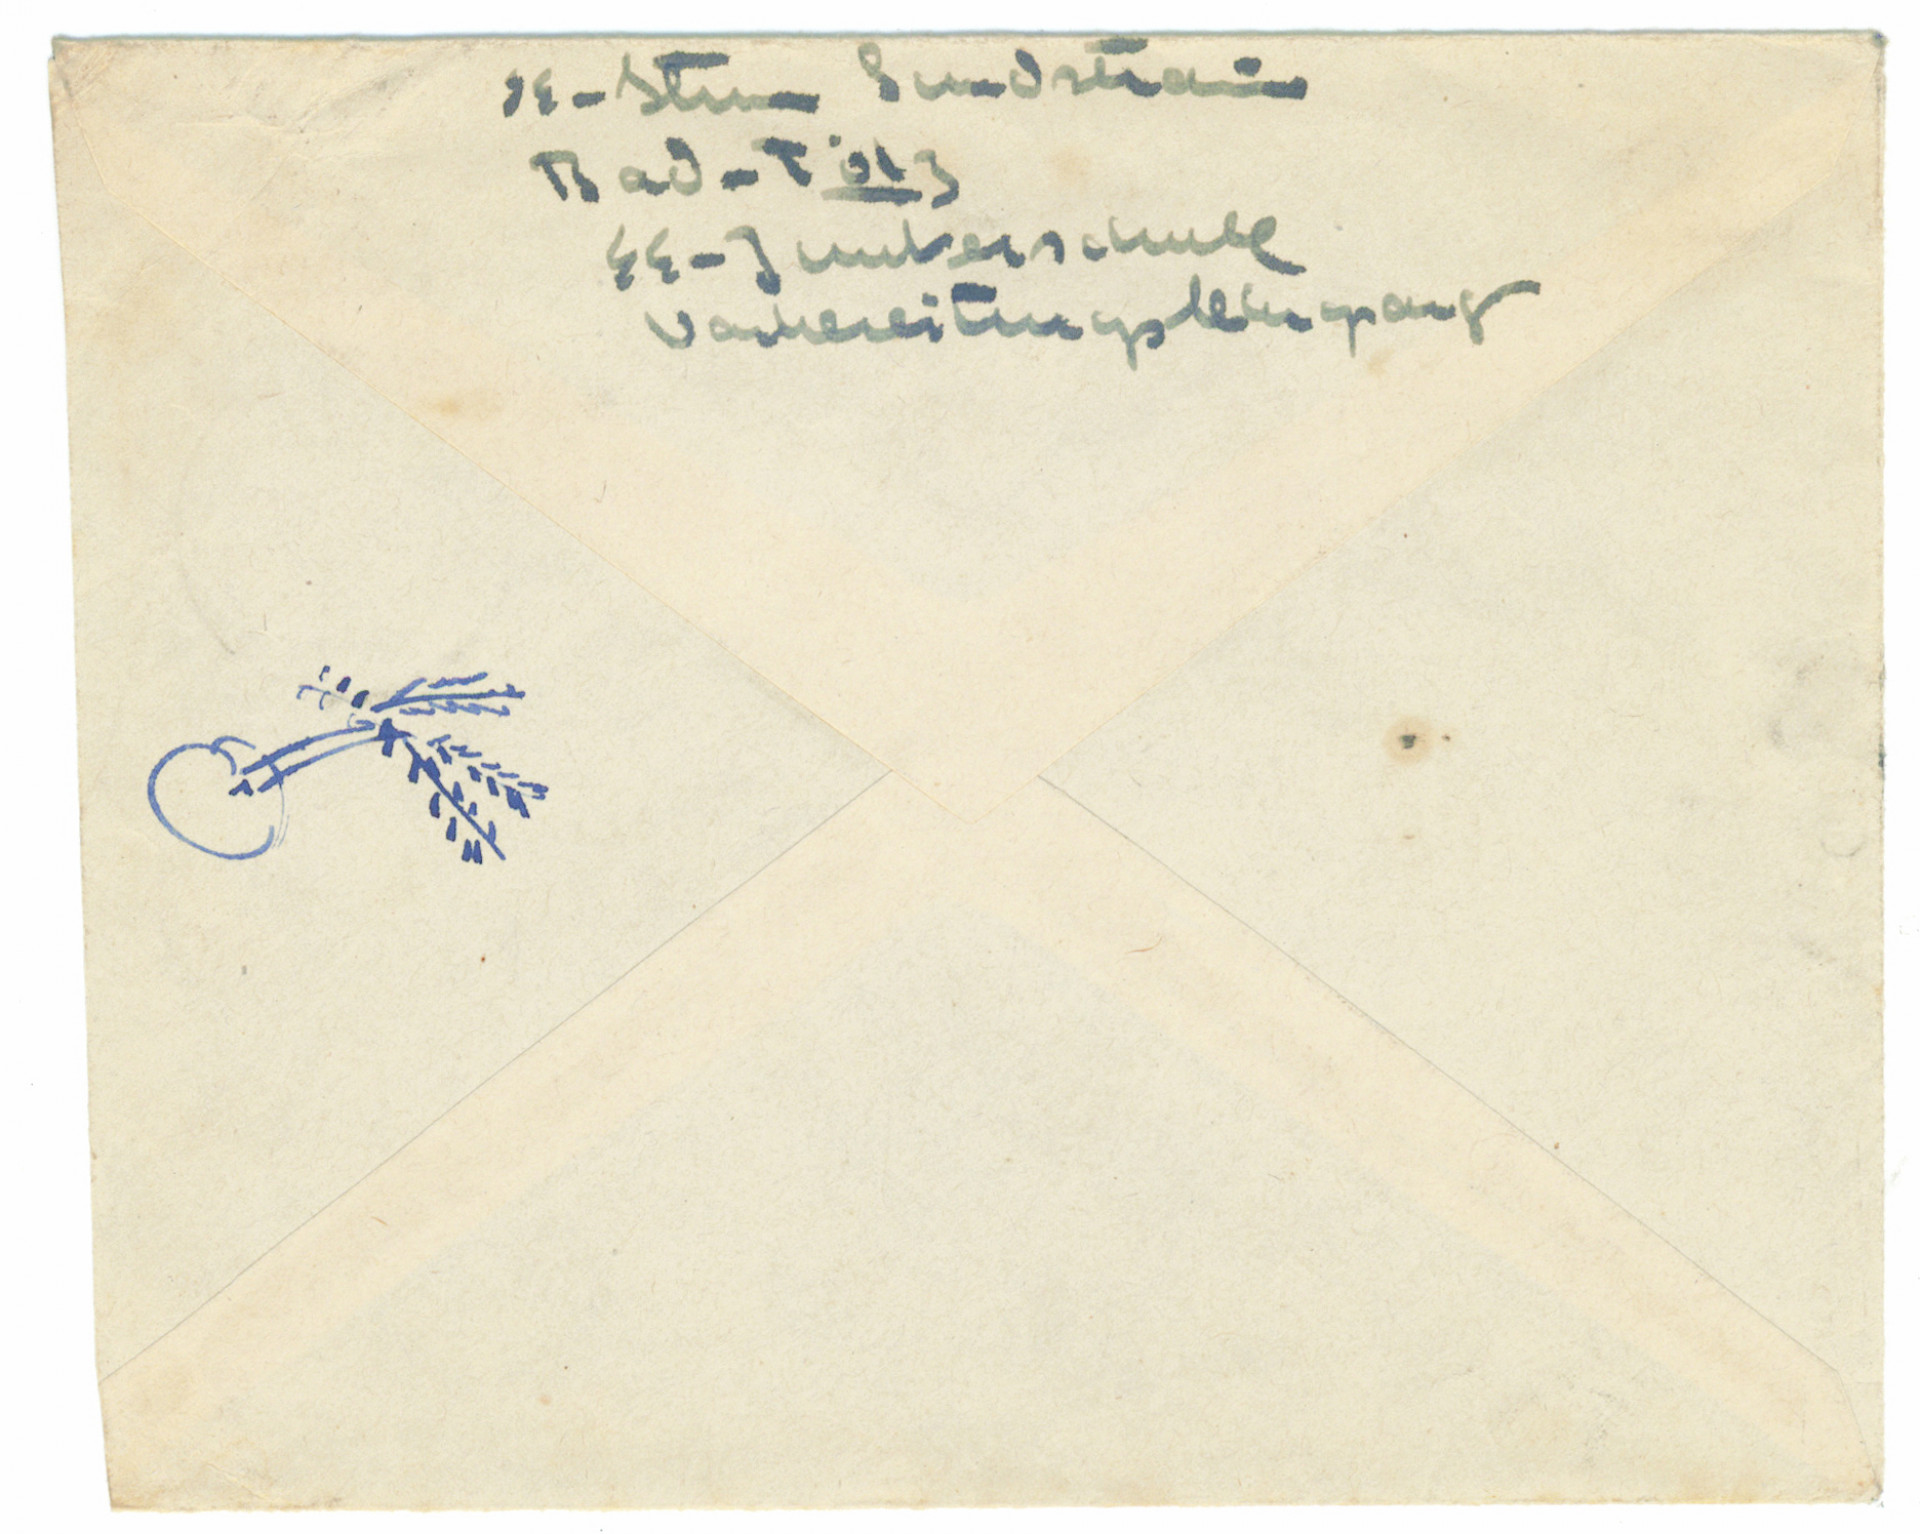 SS-Strm Sundstroem
Bad-Tölz
SS-Junkerschule
Vorbereitungslehrgang